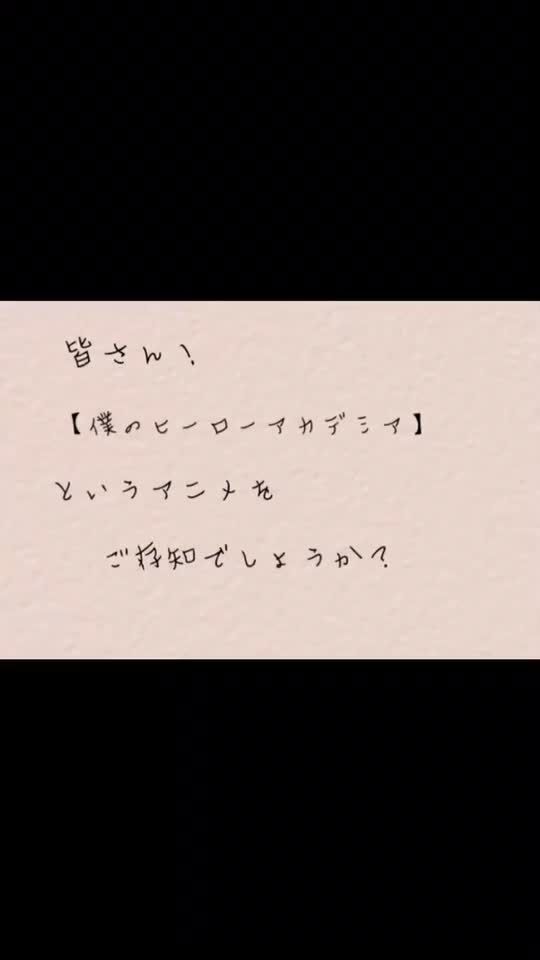 皆さん!
【僕のヒーローアカデミア】
というアニメを
ご存知でしょうか?